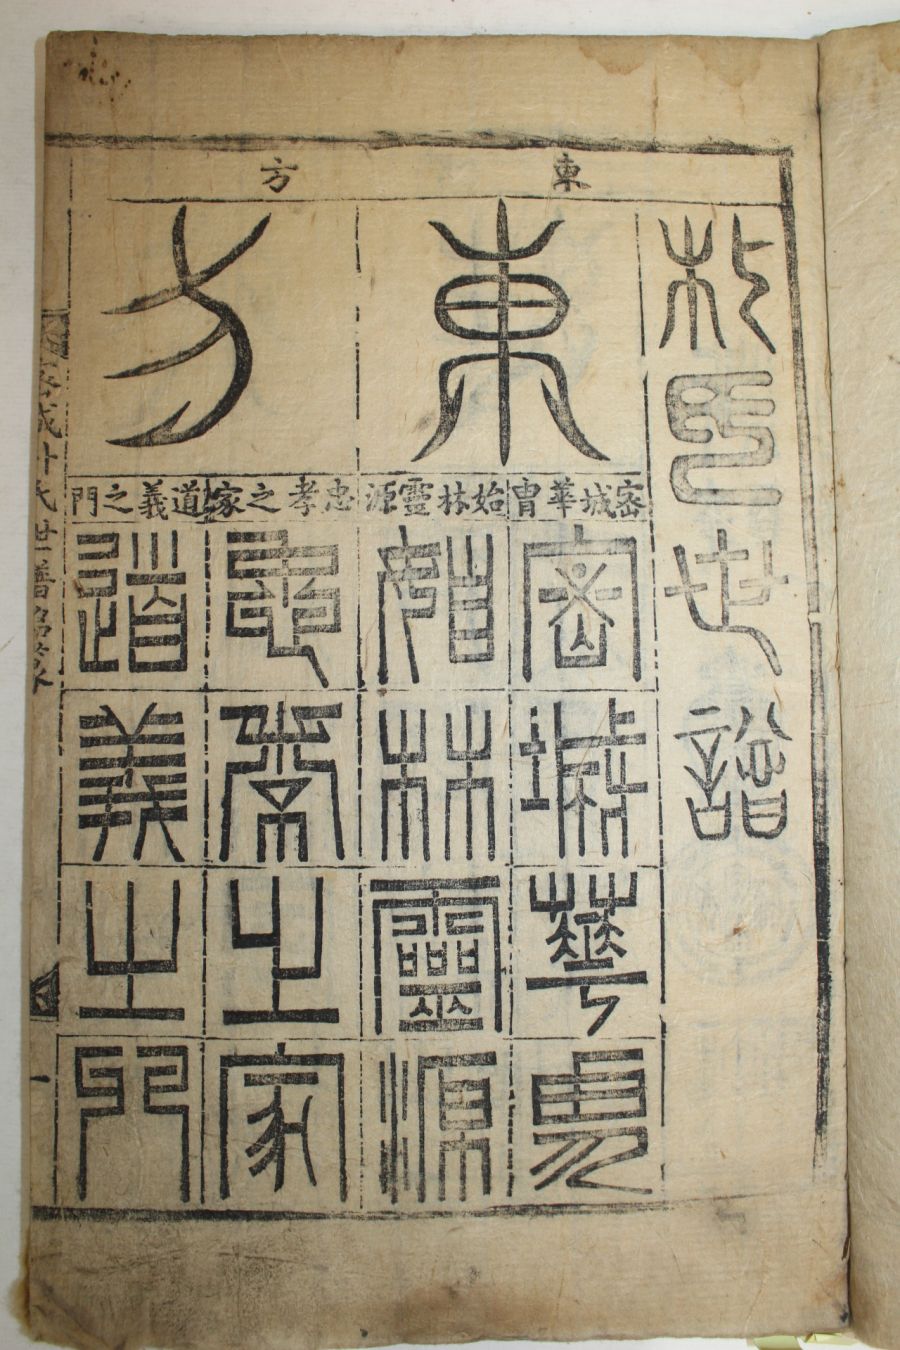 朴氏世譜
東方
東方
密城華胄始林靈源忠孝之家道義之門
密城華胄
始林靈源
忠孝之家
道義之門
密城朴氏世譜
一